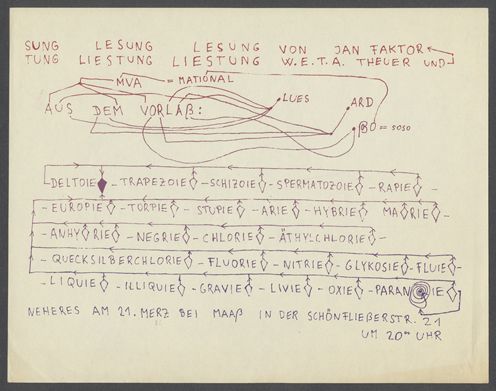 SUNG LESUNG LESUNG VON JAN FAKTOR
TUNG LIESTUNG LIESTUNG W.E.T.A. THEUER UND
MVA = MATIONAL
LUES
ARD
AUS DEM VORLAß:
βO = SOSO
DELTOIE - TRAPEZOIE - SCHIZOIE - SPERMATOZOIE - RAPIE -
- EUROPIE - TORPIE - STUPIE - ARIE - HYBRIE MARIE -
- ANHYRIE - NEGRIE - CHLORIE - ÄTHYLCHLORIE -
- QUECKSILBERCHLORIE - FLUORIE - NITRIE - GLYKOSIE - FLUIE -
- LIQUIE - ILLIQUIE - GRAVIE - LIVIE - OXIE - PARANOIE
NEHERES AM 21. MERZ BEI MAAß IN DER SCHÖNFLIEßERSTR. 21
UM 20⁰⁰ UHR